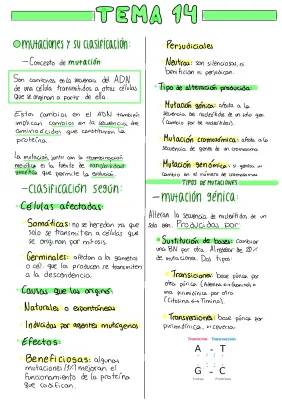 TEMA 14
Mutaciones y su clasificación:
- Concepto de mutación
Son cambios en la secuencia del ADN
de una célula transmitidos a otras células
que se originan a partir de ella
Estos cambios en el ADN también
implican cambios en la secuencia de
aminoácidos que constituyen la
proteína.
La mutación junto con la recombinación
es la fuente de
genética que permite la evolución
- Clasificación según:
· Células afectadas:
Somáticas: no se heredan ya que
solo se transmiten a células que
se originan por mitosis.
Germinales: afectan a los gametos
o cél. que los producen se transmiten
a la descendencia.
· Causas que las originó
Naturales o espontáneas
Inducidas por agentes mutágenos
· Efectos:
Beneficiosas: algunas
mutaciones mejoran el
funcionamiento de la proteína
que codifican.
Perjudiciales
Neutras: son silenciosas, ni
benefician ni perjudican.
· Tipo de alteración producida
Mutación génica: afecta a la
secuencia de nucleótidos de un solo gen
(cambios por de nucleótidos).
Mutación cromosómica: afecta a la
secuencia de genes de un cromosoma
Mutación genómica: si genera un
cambio en el número de cromosomas
TIPOS DE MUTACIONES
- Mutación génica:
Alteran la secuencia de nucleótidos de un
solo gen. Producidas por:
Sustitución de bases: cambio por
una BN por otra. Alrededor de 20%
de mutaciones. Dos tipos:
Transiciones: base púrica por
otra púrica (Adenina ↔ Guanina) o
una pirimidínica por otra
(Citosina ↔ Timina).
Transversiones: base púrica por
pirimidínica, o viceversa.
Transición Transversión
A - T
G - C
Purinas Pirimidinas